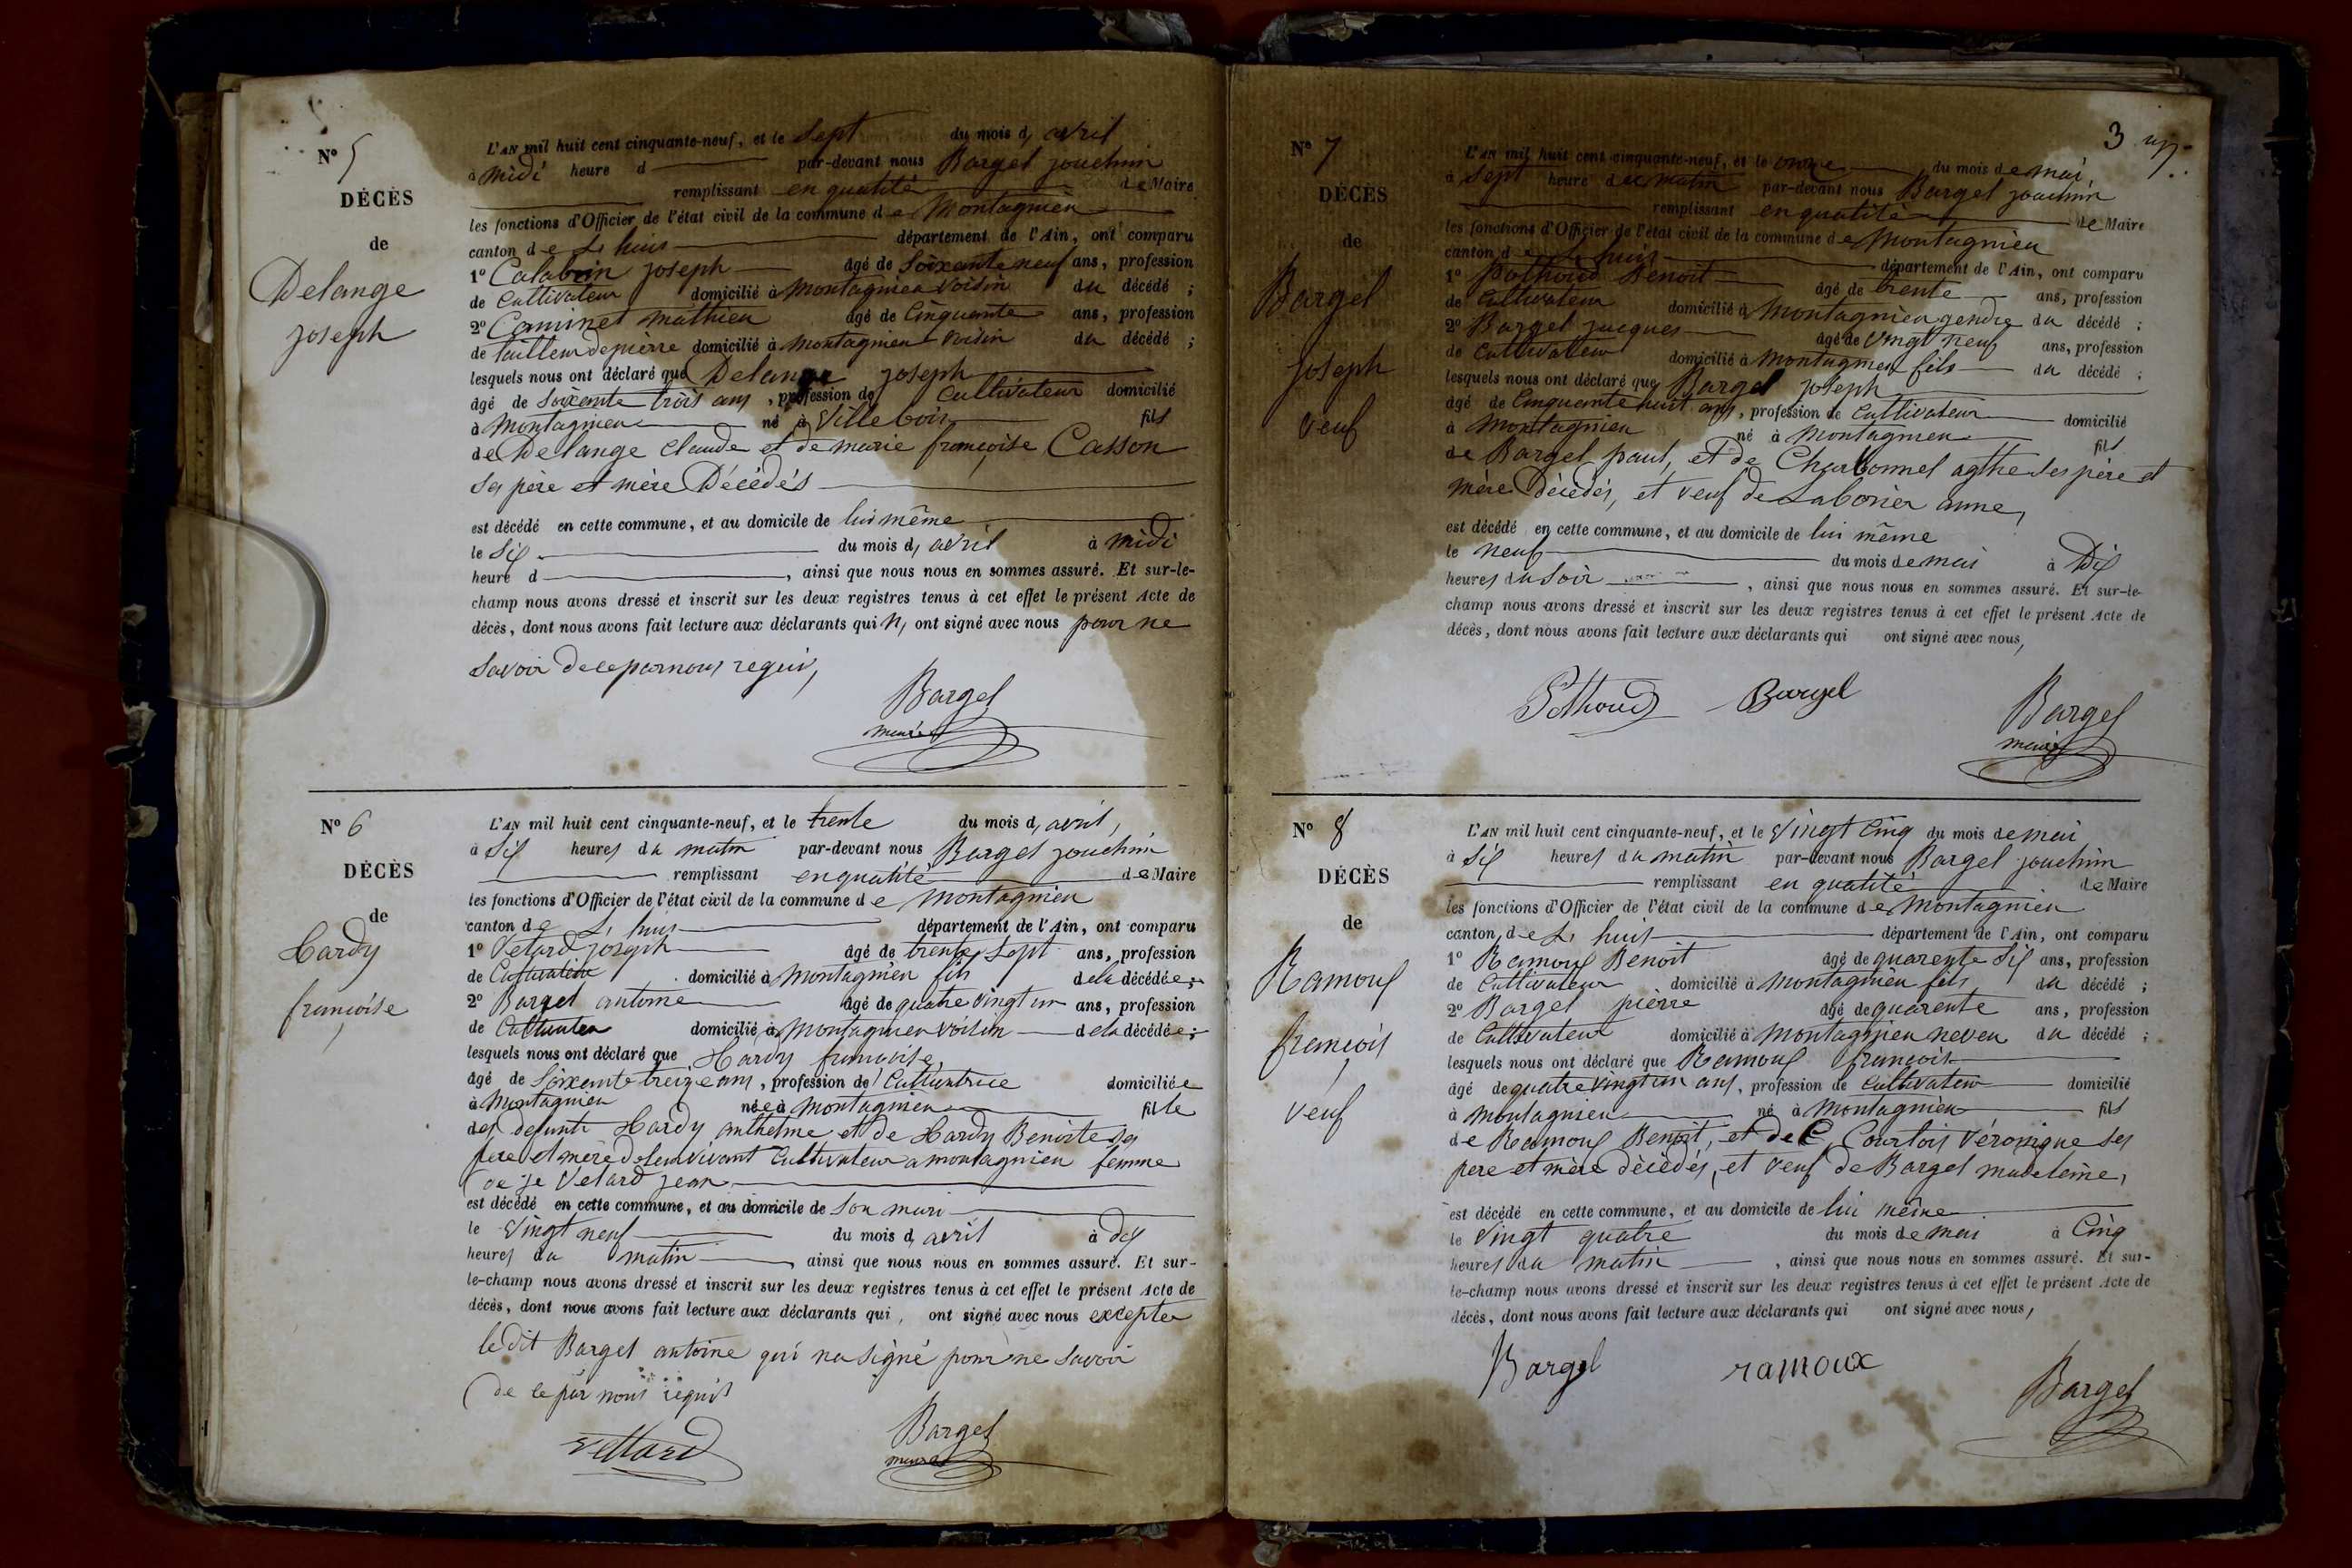 N° 5
DÉCÈS
de
Delange
joseph
L'AN mil huit cent cinquante-neuf, et le Sept du mois d, avril
à midi heure d par-devant nous Bargel jouchim
remplissant en qualité de Maire
les fonctions d'Officier de l'état civil de la commune de Montagnieu
canton de L, huis département de l'Ain, ont comparu
1° joseph âgé de Soixante neuf ans, profession
de Cultivateur domicilié à Montagnieu voisin du décédé ;
2° Caminet mathieu âgé de Cinquante ans, profession
de tailleur de pierre domicilié à Montagnieu voisin du décédé ;
lesquels nous ont déclaré que Delange joseph
âgé de Soixante trois ans, profession de Cultivateur domicilié
à Montagnieu né à Villebois fils
de Delange Claude et de marie françoise Casson
Ses père et mère Décédés
est décédé en cette commune, et au domicile de lui même
le Six du mois d, avril à midi
heure d , ainsi que nous nous en sommes assuré. Et sur-le-
champ nous avons dressé et inscrit sur les deux registres tenus à cet effet le présent Acte de
décès, dont nous avons fait lecture aux déclarants qui n, ont signé avec nous pour ne
savoir de ce par nous requis,
Bargel
maire
N° 6
DÉCÈS
de
Hardy
françoise
L'AN mil huit cent cinquante-neuf, et le trente du mois d, avril,
à Six heures du matin par-devant nous Bargel jouchim
remplissant en qualité de Maire
les fonctions d'Officier de l'état civil de la commune de Montagnieu
canton de L, huis département de l'Ain, ont comparu
1° Vetard joseph âgé de trente Sept ans, profession
de Cultivateur domicilié à Montagnieu fils de la décédée ;
2° Bargel antoine âgé de quatre vingt un ans, profession
de Cultivateur domicilié à Montagnieu voisin de la décédée ;
lesquels nous ont déclaré que Hardy françoise
âgé de Soixante treize ans, profession de Cultivatrice domiciliée
à Montagnieu née à Montagnieu fille
des defunts Hardy anthelme et de Hardy Benoite Ses
père et mère De leur vivant Cultivateur a montagnieu femme
de Vetard jean
est décédé en cette commune, et au domicile de Son mari
le Vingt neuf du mois d, avril à dix
heures du matin , ainsi que nous nous en sommes assuré. Et sur-
le-champ nous avons dressé et inscrit sur les deux registres tenus à cet effet le présent Acte de
décès, dont nous avons fait lecture aux déclarants qui, ont signé avec nous excepter
ledit Bargel antoine qui na signé pour ne Savoir
de ce par nous requis
Vettard
Bargel
maire
3
N° 7
DÉCÈS
de
Bargel
joseph
veuf
L'AN mil huit cent cinquante-neuf, et le onze du mois de mai,
à Sept heure du matin par-devant nous Bargel jouchim
remplissant en qualité de Maire
les fonctions d'Officier de l'état civil de la commune de Montagnieu
canton de L, huis département de l'Ain, ont comparu
1° Pothoud Benoit âgé de trente ans, profession
de Cultivateur domicilié à Montagnieu gendre du décédé ;
2° Bargel jacques âgé de Vingt neuf ans, profession
de Cultivateur domicilié à Montagnieu fils du décédé ;
lesquels nous ont déclaré que Bargel joseph
âgé de Cinquante huit ans, profession de Cultivateur domicilié
à Montagnieu né à Montagnieu fils
de Bargel paul, et de Charbonnel agthe Ses père et
mère Décédés, et veuf de Laborier anne,
est décédé en cette commune, et au domicile de lui même
le neuf du mois de mai à Dix
heures du Soir , ainsi que nous nous en sommes assuré. Et sur-le-
champ nous avons dressé et inscrit sur les deux registres tenus à cet effet le présent Acte de
décès, dont nous avons fait lecture aux déclarants qui ont signé avec nous,
Pothoud Bargel
Bargel
maire
N° 8
DÉCÈS
de
Ramoux
françois
veuf
L'AN mil huit cent cinquante-neuf, et le Vingt Cinq du mois de mai
à Six heures du matin par-devant nous Bargel jouchim
remplissant en qualité de Maire
les fonctions d'Officier de l'état civil de la commune de Montagnieu
canton de L, huis département de l'Ain, ont comparu
1° Ramoux Benoit âgé de quarente Six ans, profession
de Cultivateur domicilié à Montagnieu fils du décédé ;
2° Bargel pièrre âgé de quarente ans, profession
de Cultivateur domicilié à Montagnieu neveu du décédé ;
lesquels nous ont déclaré que Ramoux françois
âgé de quatre Vingt un ans, profession de Cultivateur domicilié
à Montagnieu né à Montagnieu fils
de Ramoux Benoit, et de C, Courtois Véronique Ses
père et mère décédés, et veuf de Bargel madeleine,
est décédé en cette commune, et au domicile de lui même
le Vingt quatre du mois de mai à Cinq
heures du matin , ainsi que nous nous en sommes assuré. Et sur-
le-champ nous avons dressé et inscrit sur les deux registres tenus à cet effet le présent Acte de
décès, dont nous avons fait lecture aux déclarants qui ont signé avec nous,
Bargel ramoux
Bargel